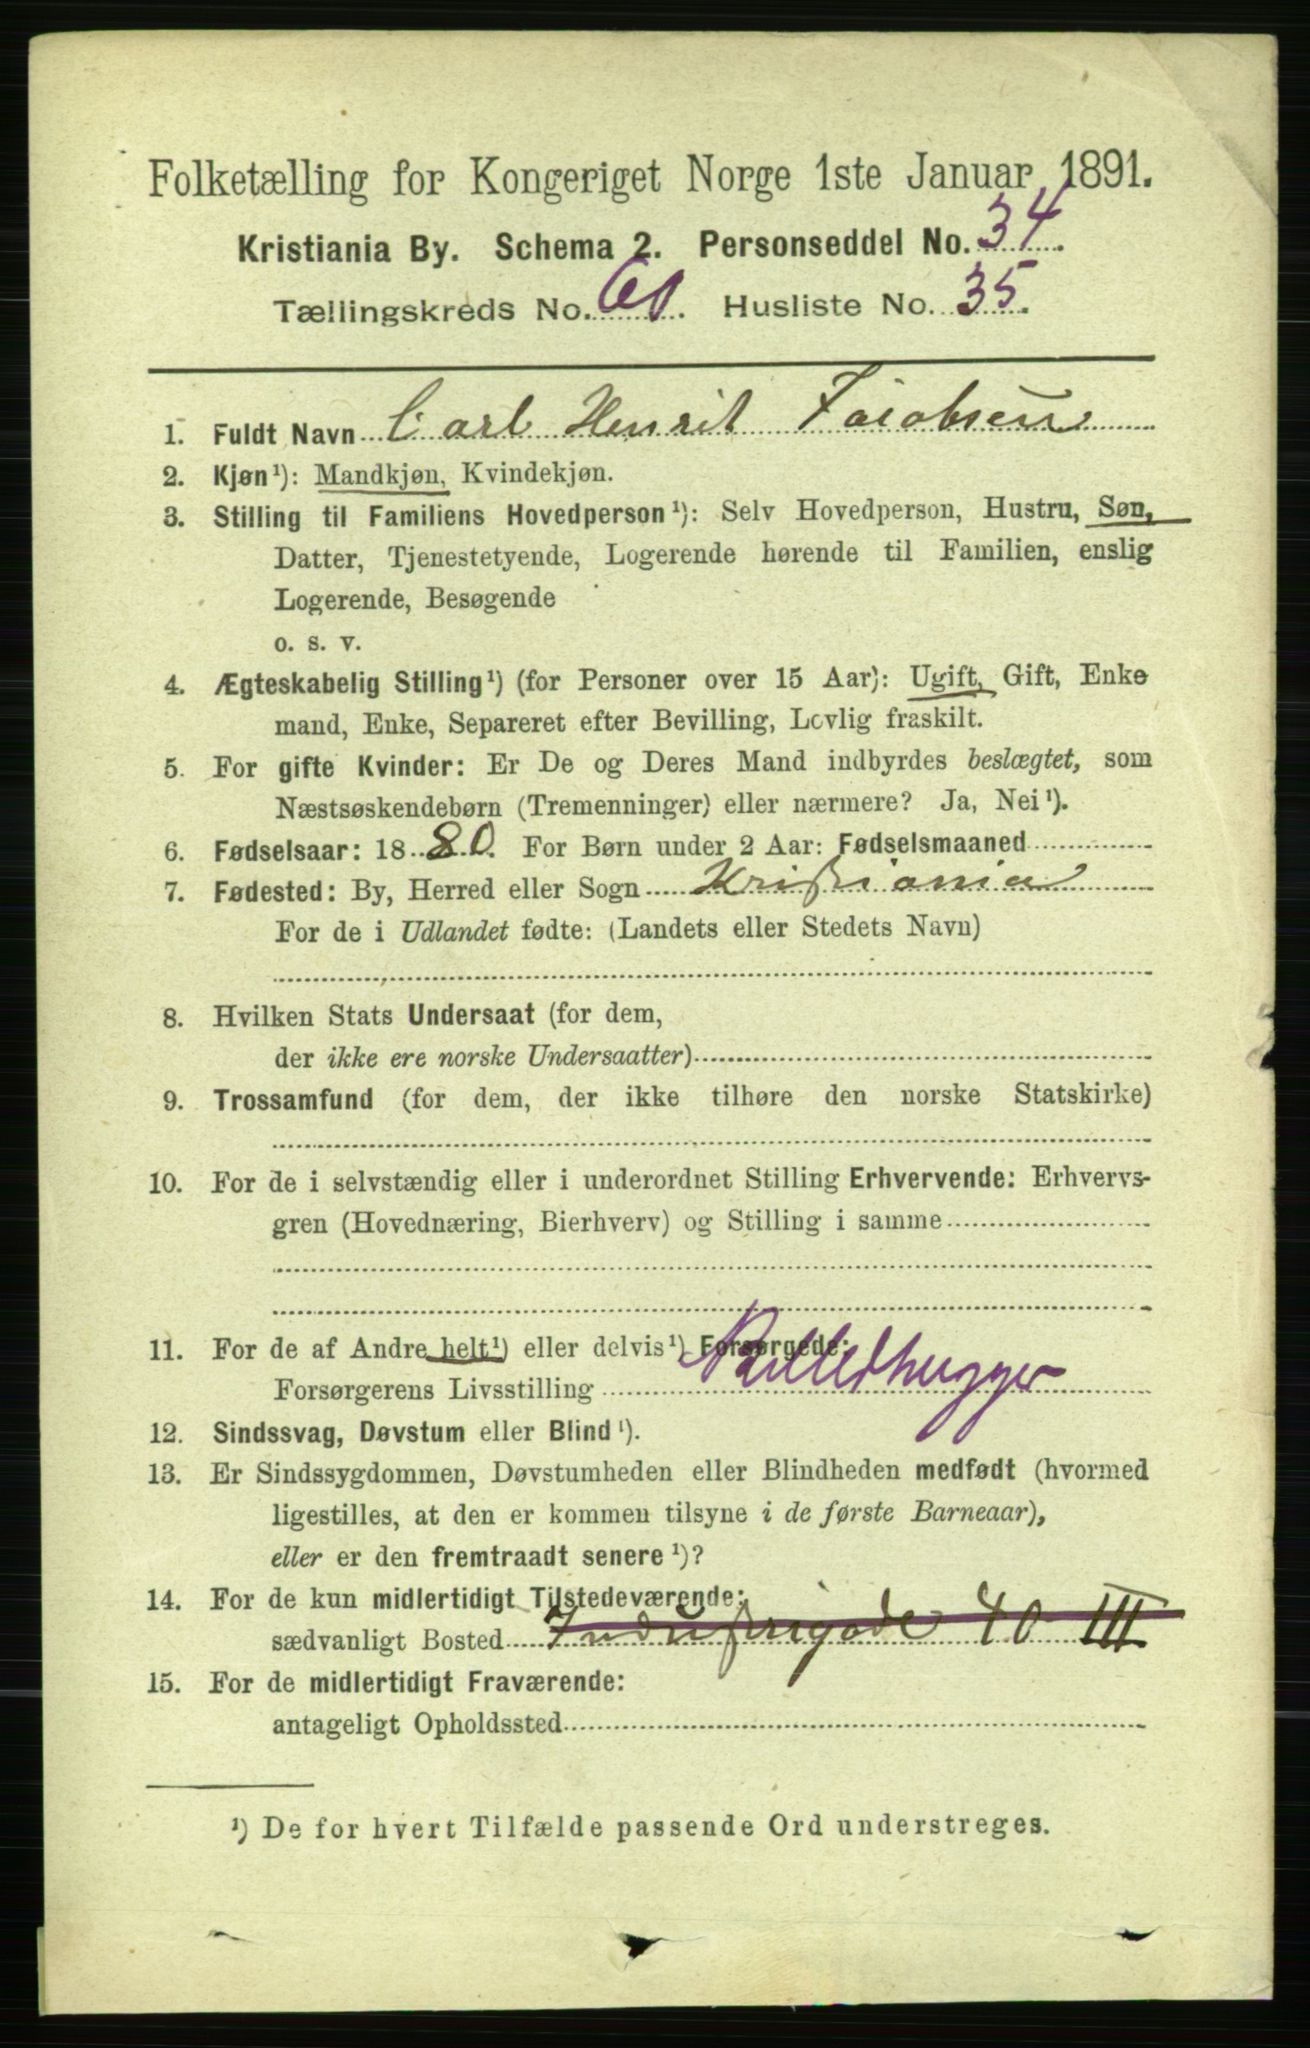 Folketælling for Kongeriget Norge 1ste Januar 1891.
Kristiania By. Schema 2. Personseddel No. 34.
Tællingskreds No. 60. Husliste No. 35.
1. Fuldt Navn Carl Henrik Jacobsen
2. Kjøn¹): Mandkjøn, Kvindekjøn.
3. Stilling til Familiens Hovedperson¹): Selv Hovedperson, Hustru, Søn,
Datter, Tjenestetyende, Logerende hørende til Familien, enslig
Logerende, Besøgende
o. s. v.
4. Ægteskabelig Stilling¹) (for Personer over 15 Aar): Ugift, Gift, Enke
mand, Enke, Separeret efter Bevilling, Lovlig fraskilt.
5. For gifte Kvinder: Er De og Deres Mand indbyrdes beslægtet, som
Næstsøskendebørn (Tremenninger) eller nærmere? Ja, Nei¹).
6. Fødselsaar: 1880. For Børn under 2 Aar: Fødselsmaaned
7. Fødested: By, Herred eller Sogn Kristiania
For de i Udlandet fødte: (Landets eller Stedets Navn)
8. Hvilken Stats Undersaat (for dem,
der ikke ere norske Undersaatter)
9. Trossamfund (for dem, der ikke tilhøre den norske Statskirke)
10. For de i selvstændig eller i underordnet Stilling Erhvervende: Erhvervs-
gren (Hovednæring, Bierhverv) og Stilling i samme
11. For de af Andre helt¹) eller delvis¹) Forsørgede:
Forsørgerens Livsstilling Billedhugger
12. Sindssvag, Døvstum eller Blind¹).
13. Er Sindssygdommen, Døvstumheden eller Blindheden medfødt (hvormed
ligestilles, at den er kommen tilsyne i de første Barneaar),
eller er den fremtraadt senere¹)?
14. For de kun midlertidigt Tilstedeværende:
sædvanligt Bosted Industrigade 40 III
15. For de midlertidigt Fraværende:
antageligt Opholdssted
¹) De for hvert Tilfælde passende Ord understreges.